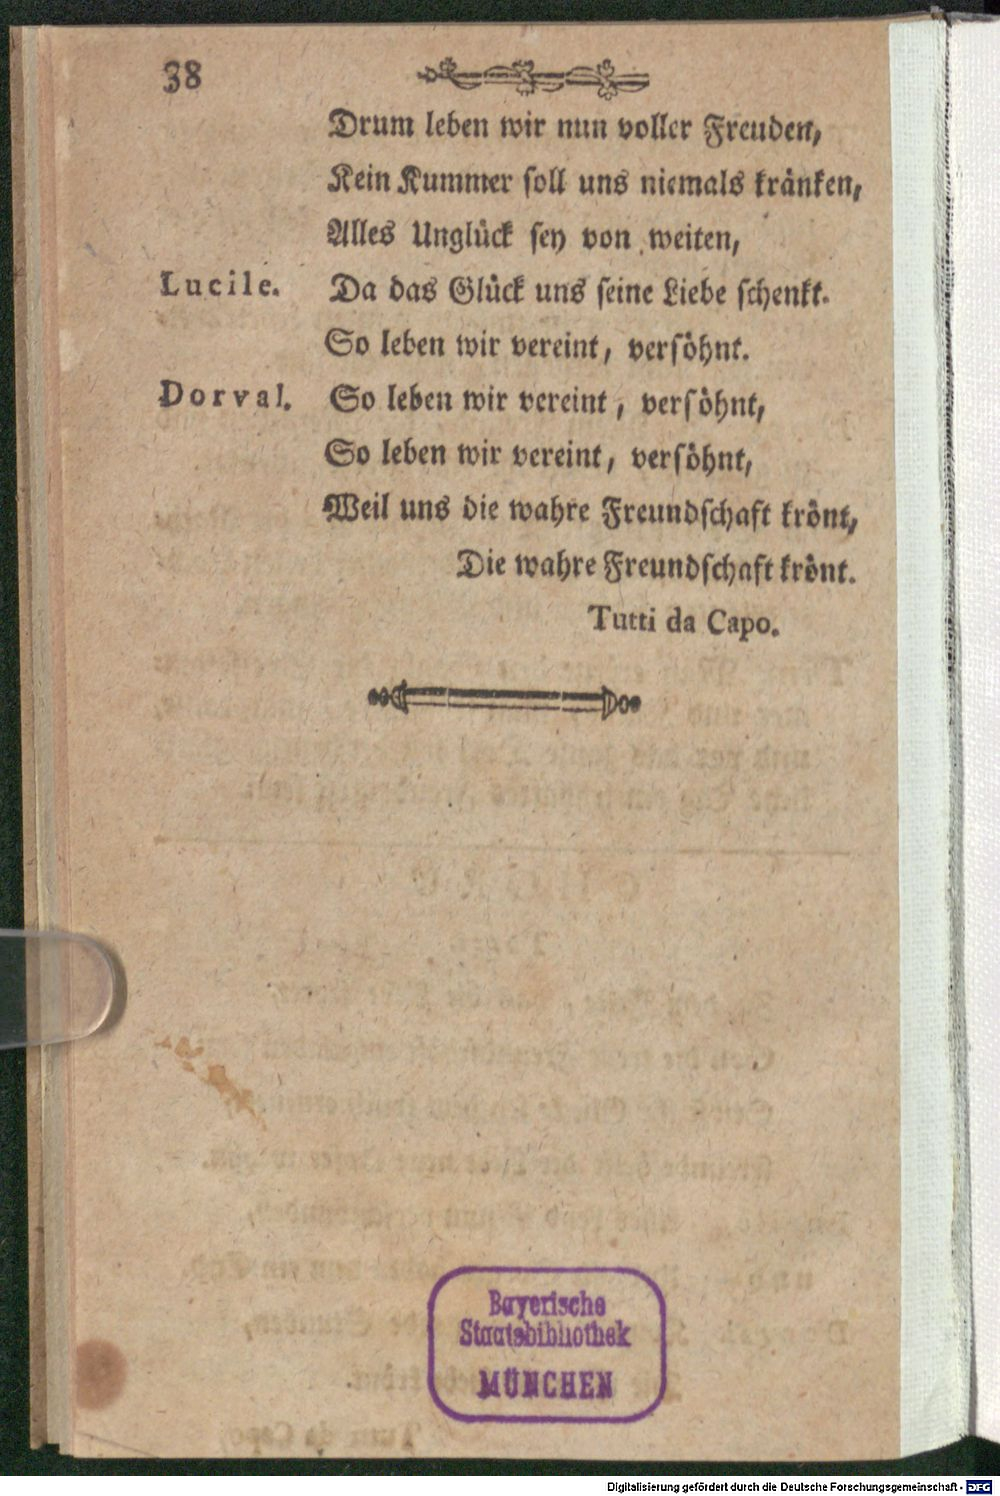 38
Drum leben wir nun voller Freuden,
Kein Kummer soll uns niemals kränken,
Alles Unglück sey von weiten,
Lucile. Da das Glück uns seine Liebe schenkt.
So leben wir vereint, versöhnt.
Dorval. So leben wir vereint, versöhnt,
So leben wir vereint, versöhnt,
Weil uns die wahre Freundschaft krönt,
Die wahre Freundschaft krönt.
Tutti da Capo.
Bayerische
Staatsbibliothek
MÜNCHEN
Digitalisierung gefördert durch die Deutsche Forschungsgemeinschaft - DFG